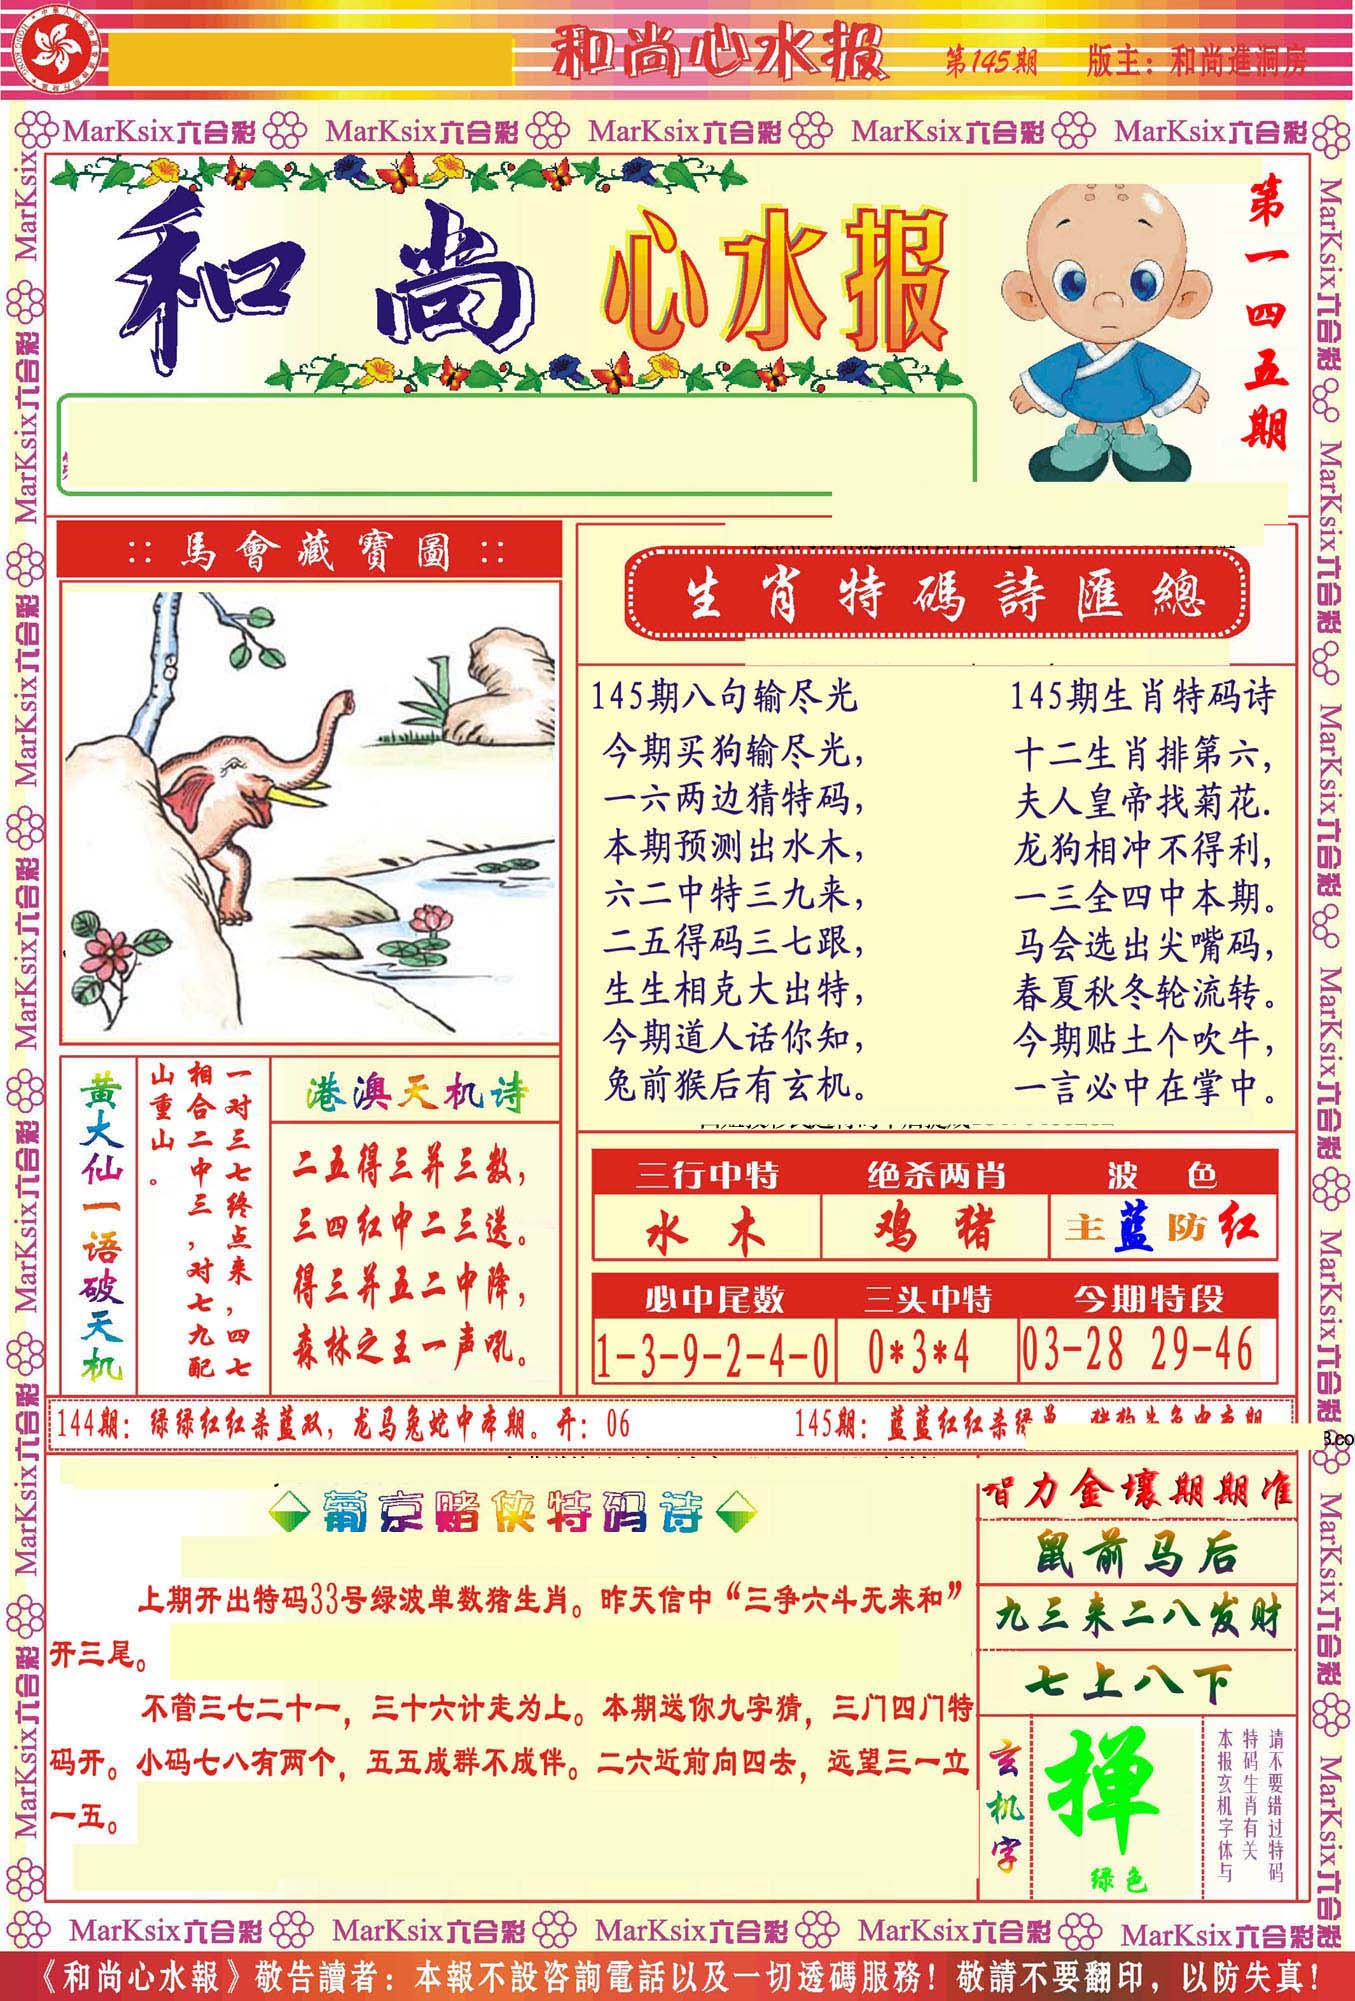 和尚心水报 第145期 版主：和尚進洞房
MarKsix六合彩 MarKsix六合彩 MarKsix六合彩 MarKsix六合彩 MarKsix六合彩
和尚心水报
第一四五期
::馬會藏寶圖::
生肖特碼詩匯總
145期八句输尽光
今期买狗输尽光，
一六两边猜特码，
本期预测出水木，
六二中特三九来，
二五得码三七跟，
生生相克大出特，
今期道人话你知，
兔前猴后有玄机。
145期生肖特码诗
十二生肖排第六，
夫人皇帝找菊花.
龙狗相冲不得利，
一三全四中本期。
马会选出尖嘴码，
春夏秋冬轮流转。
今期贴土个吹牛，
一言必中在掌中。
黄大仙一语破天机
一对三七终点来，四七
相合二中三，对七九配
山重山。
港澳天机诗
二五得三并三数，
三四红中二三送。
得三并五二中降，
森林之王一声吼。
三行中特 绝杀两肖 波色
水木 鸡猪 主蓝防红
必中尾数 三头中特 今期特段
1-3-9-2-4-0 0*3*4 03-28 29-46
144期：绿绿红红杀蓝双，龙马兔蛇中本期。开：06
145期：蓝蓝红红杀绿单
3.co
葡京赌侠特码诗
上期开出特码33号绿波单数猪生肖。昨天信中“三争六斗无来和”
开三尾。
不管三七二十一，三十六计走为上。本期送你九字猜，三门四门特
码开。小码七八有两个，五五成群不成伴。二六近前向四去，远望三一立
一五。
智力金壤期期准
鼠前马后
九三来二八发财
七上八下
玄机字
禅
绿色
请不要错过特码
特码生肖有关
本报玄机字体与
MarKsix六合彩 MarKsix六合彩 MarKsix六合彩 MarKsix六合彩 MarKsix六合彩
《和尚心水報》敬告讀者：本報不設咨詢電話以及一切透碼服務！敬請不要翻印，以防失真！